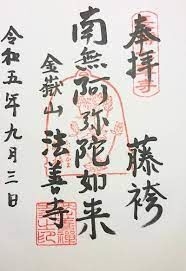 奉拝
藤袴
南無阿弥陀如来
金嶽山 法善寺
令和五年九月三日